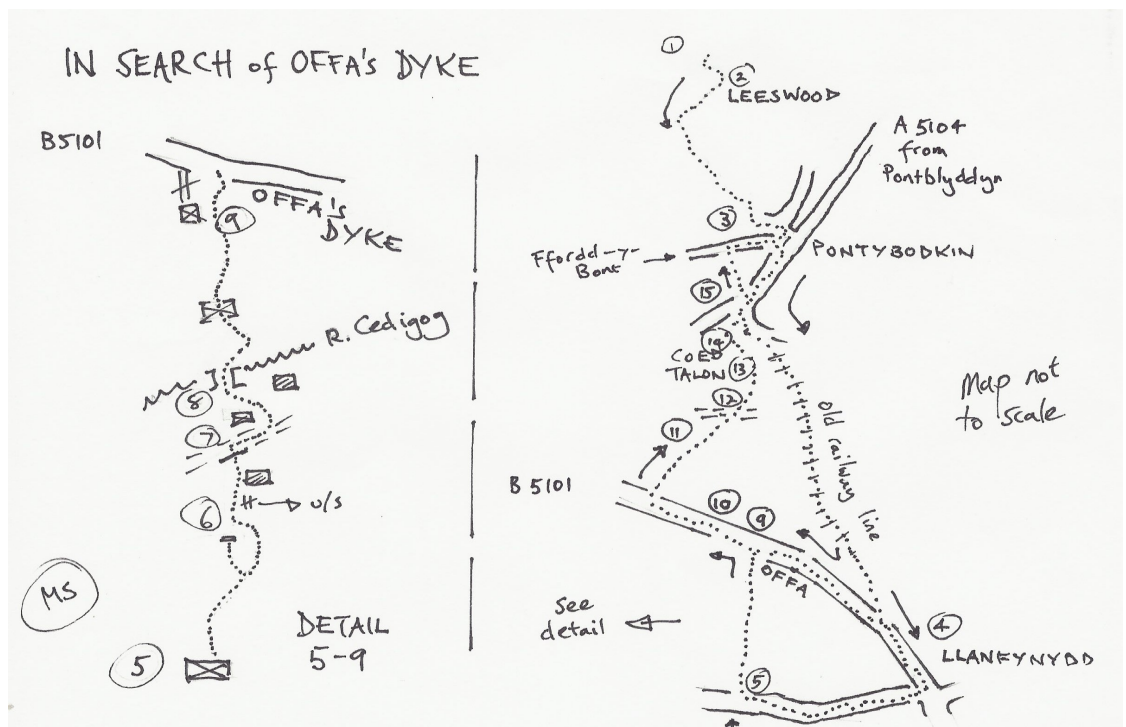 IN SEARCH of OFFA's DYKE
B5101
OFFA's
DYKE
9
R. Cedigog
8
7
6
u/s
MS
5
DETAIL
5-9
1
2
LEESWOOD
A 5104
from
Pontblyddyn
3
Ffordd-y-
Bont
PONTYBODKIN
15
14
COED
TALON
13
12
11
Map not
to scale
old railway line
B 5101
10
9
OFFA
See
detail
4
LLANFYNYDD
5